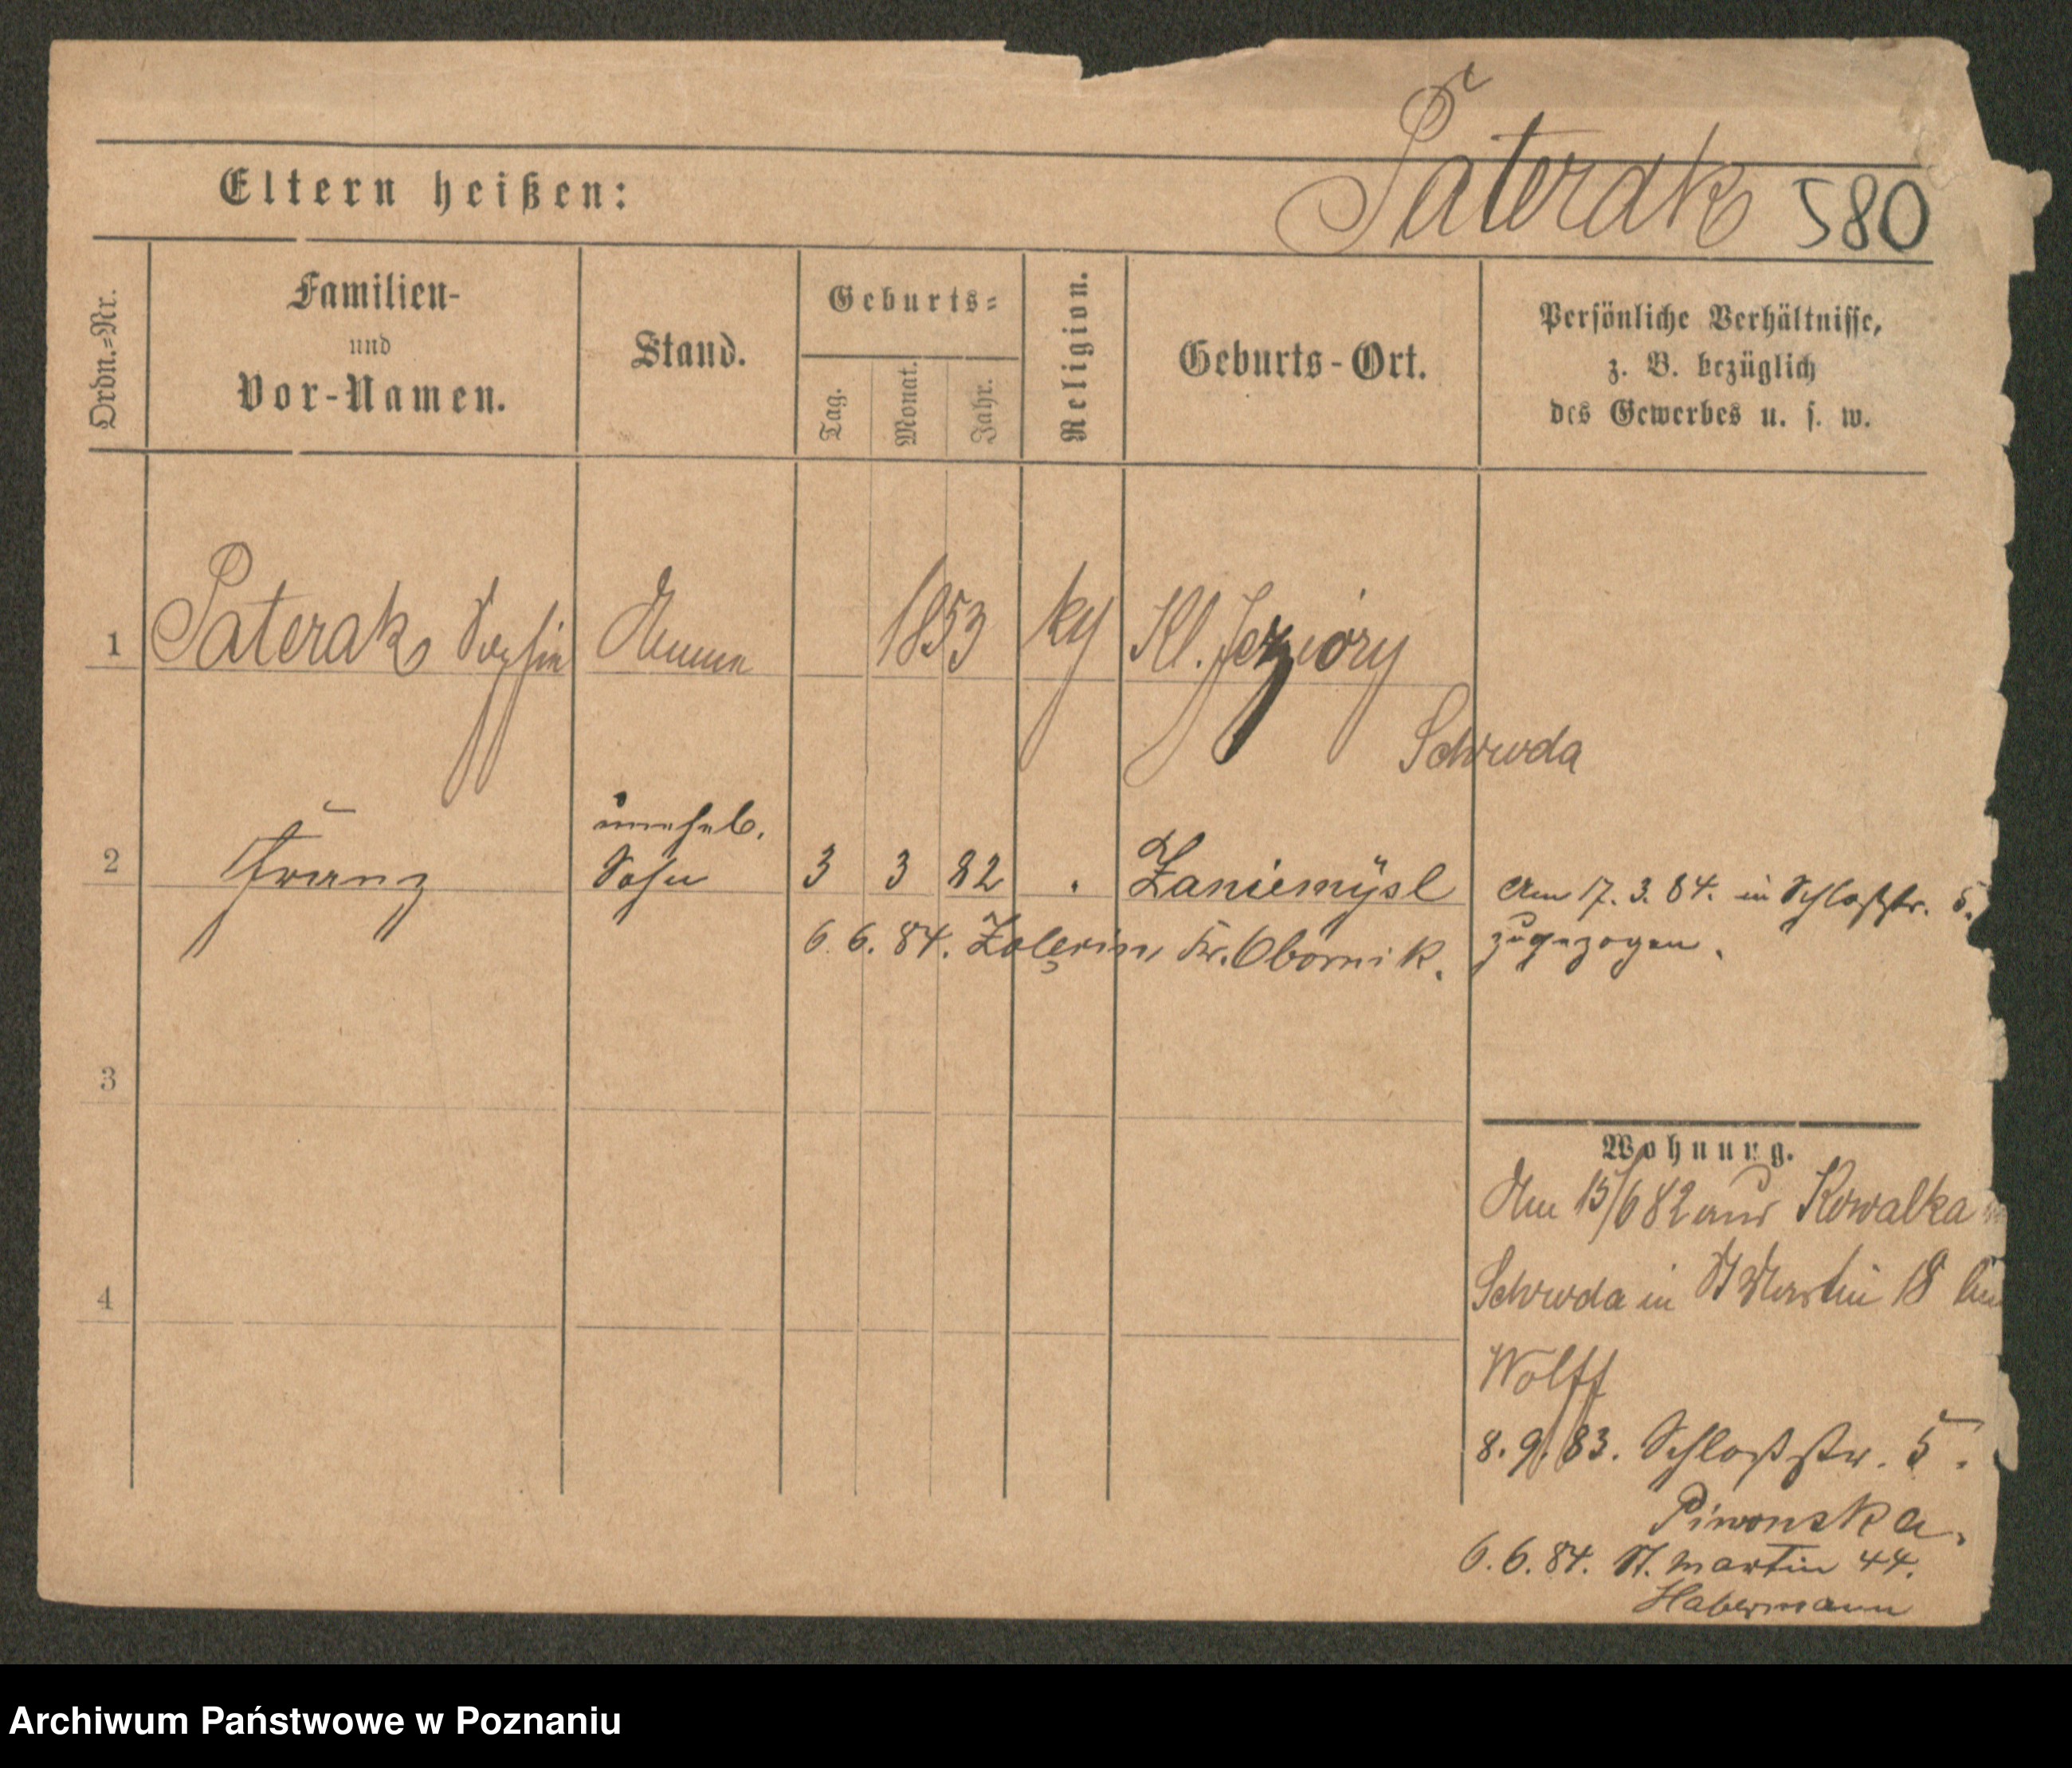 Paterak 580
Eltern heißen:
Ordn.=Nr.
Familien-
und
Vor-Namen.
Stand.
Geburts=
Tag.
Monat.
Jahr.
Religion.
Geburts-Ort.
Persönliche Verhältnisse,
z. B. bezüglich
des Gewerbes u. s. w.
1 Paterak Sophie Amme 1853 Kl. Jeziory
Schroda
unehel.
2 Franz Sohn 3 3 82 Zaniemysl Am 17. 3. 84. in Schloßstr. 5.
zugezogen.
6. 6. 84. Kr. Obornik.
3
Wohnung.
Am 15/6 82 aus Kowalka
4
Schroda in St Martin 18 bei
Wolff
8. 9. 83. Schloßstr. 5.
Piwonska.
6. 6. 84. St. Martin 44.
Habermann
Archiwum Państwowe w Poznaniu